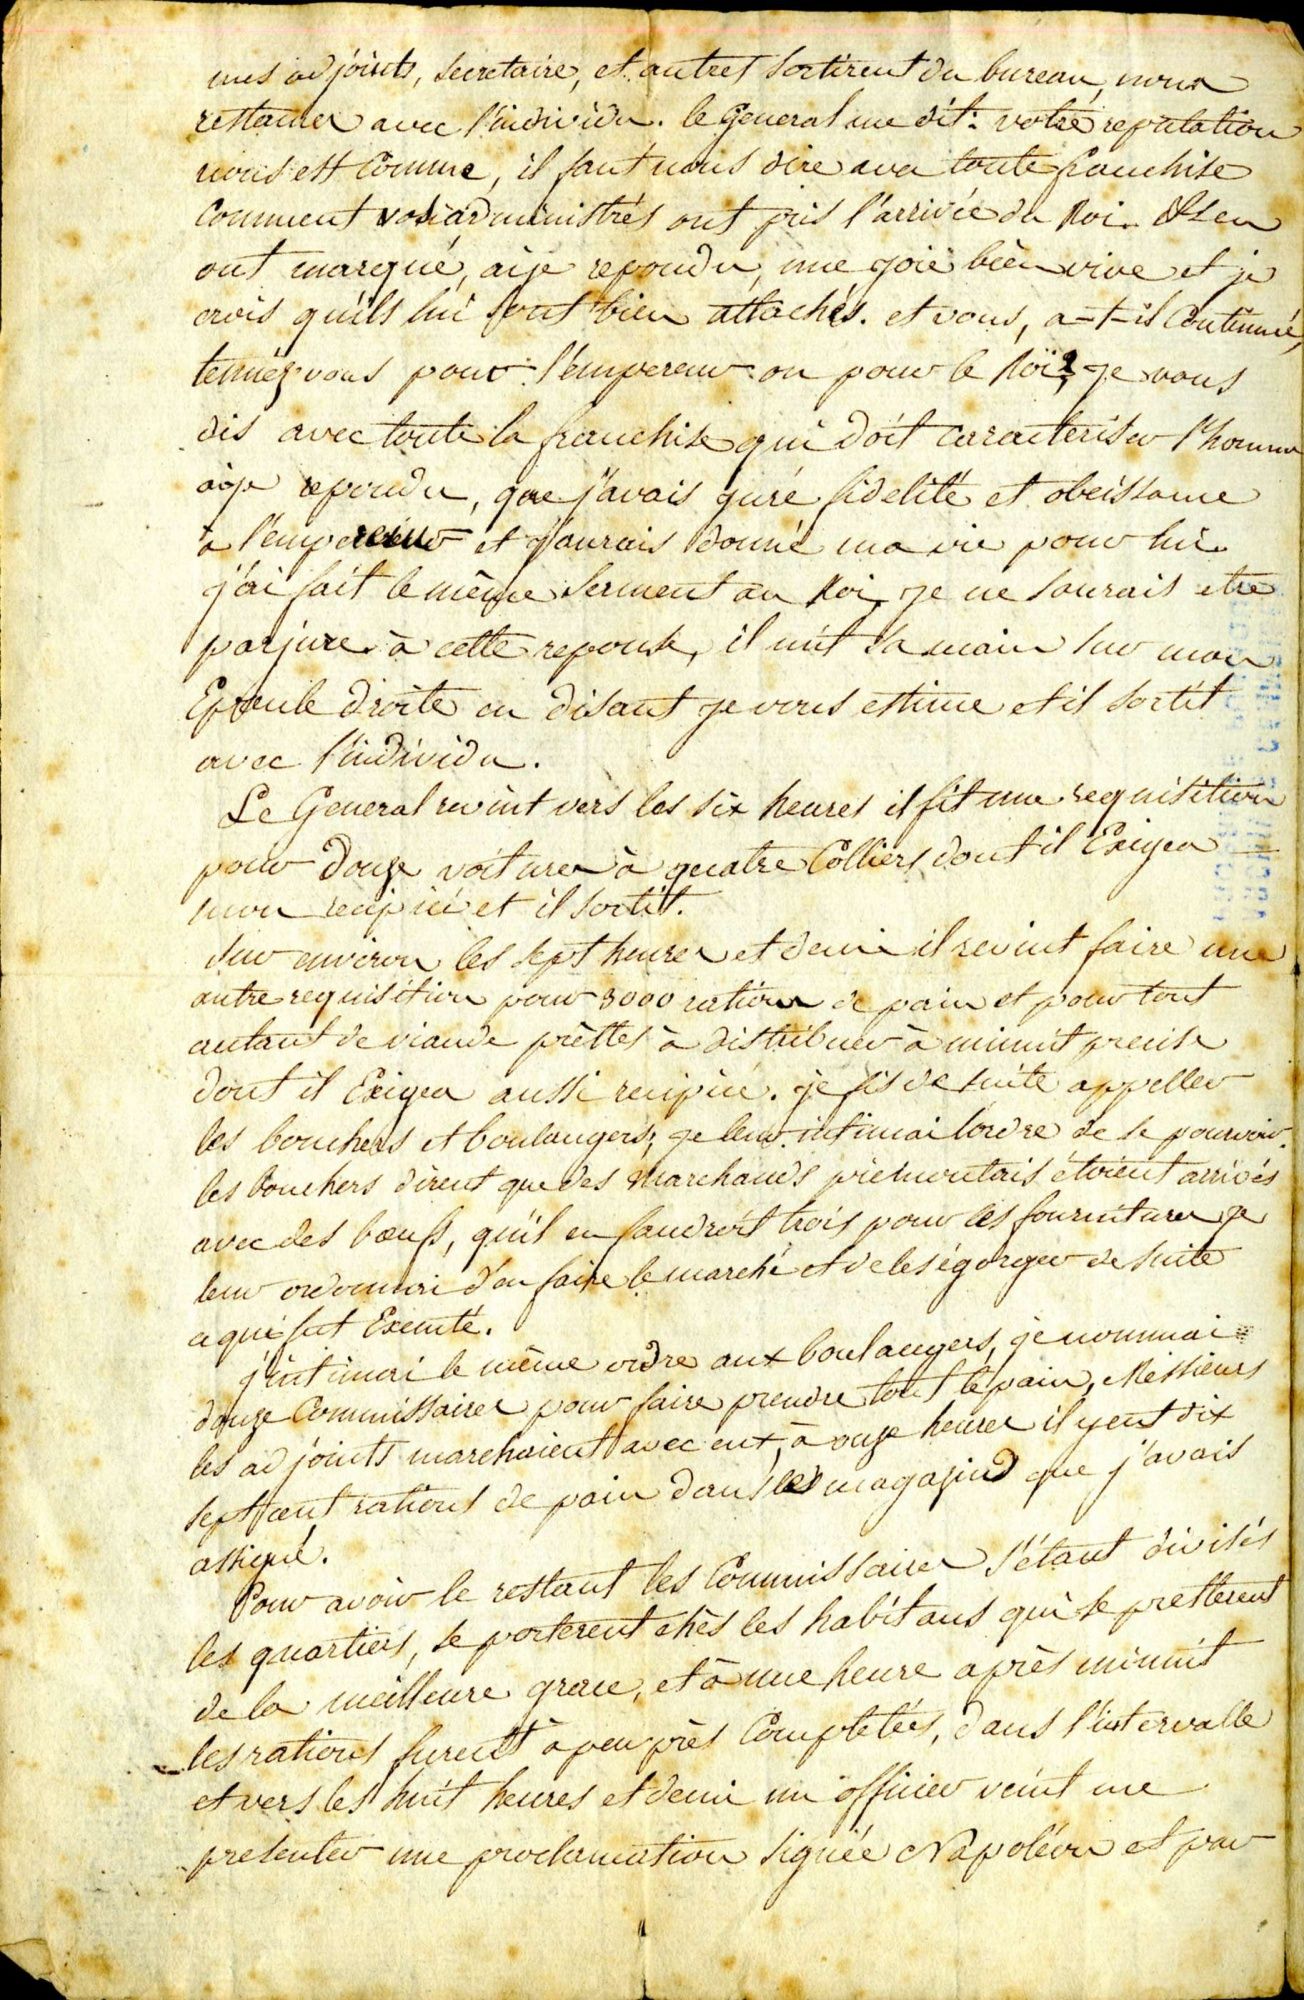 mes adjoints, secretaire, et autres sortirent du bureau, nous
restames avec l'individu. le General me dit: votre reputation
nous est connue, il faut nous dire avec toute franchise
comment vos administrés ont pris l'arrivée du Roi. Ils en
ont marqué, aije repondu, une joie bien vive et je
crois qu'ils lui sont bien attachés. et vous, a-t-il continué,
tenéz vous pour l'empereur ou pour le Roi? je vous
dis avec toute la franchise qui doit caracteriser l'homme
aije repondu, que j'avais juré fidelité et obeissance
a l'empereur et j'aurais donné ma vie pour lui.
j'ai fait le même serment au Roi je ne saurais etre
parjure. à cette reponse, il mit sa main sur mon
Epaule droite en disant je vous estime et il sortit
avec l'individu.
Le General revint vers les six heures il fit une requisition
pour douze voitures à quatre Colliers dont il Exigea
mon recipicé et il sortit.
Sur environ les sept heures et demi il revint faire une
autre requisition pour 3000 rations de pain et pour tout
autant de viande prèttes à distribuer à minuit precise
dont il Exigea aussi recipicé. je fis de suite appeller
les bouchers et boulangers; je leur intimai l'ordre de se pourvoir.
les bouchers dirent que des marchands piemontais étoient arrivés
avec des bœufs, qu'il en faudroit trois pour les fournitures je
leur ordonnai d'en faire le marché et de les égorger de suite
ce qui fut Executé.
j'intimai le même ordre aux boulangers, je nommai
douze Commissaires pour faire prendre tout le pain, Messieurs
les adjoints marchoient avec eux, à onze heures il y eut dix
sept cent rations de pain dans les magazins que j'avais
assigné.
Pour avoir le restant les Commissaires s'étant divisés
les quartiers, se porterent chès les habitans qui se pretterent
de la meilleure grace, et à une heure après minuit
les rations furent à peu près Completées, dans l'intervalle
et vers les huit heures et demi un officier vint me
presenter une proclamation signée Napoléon et par